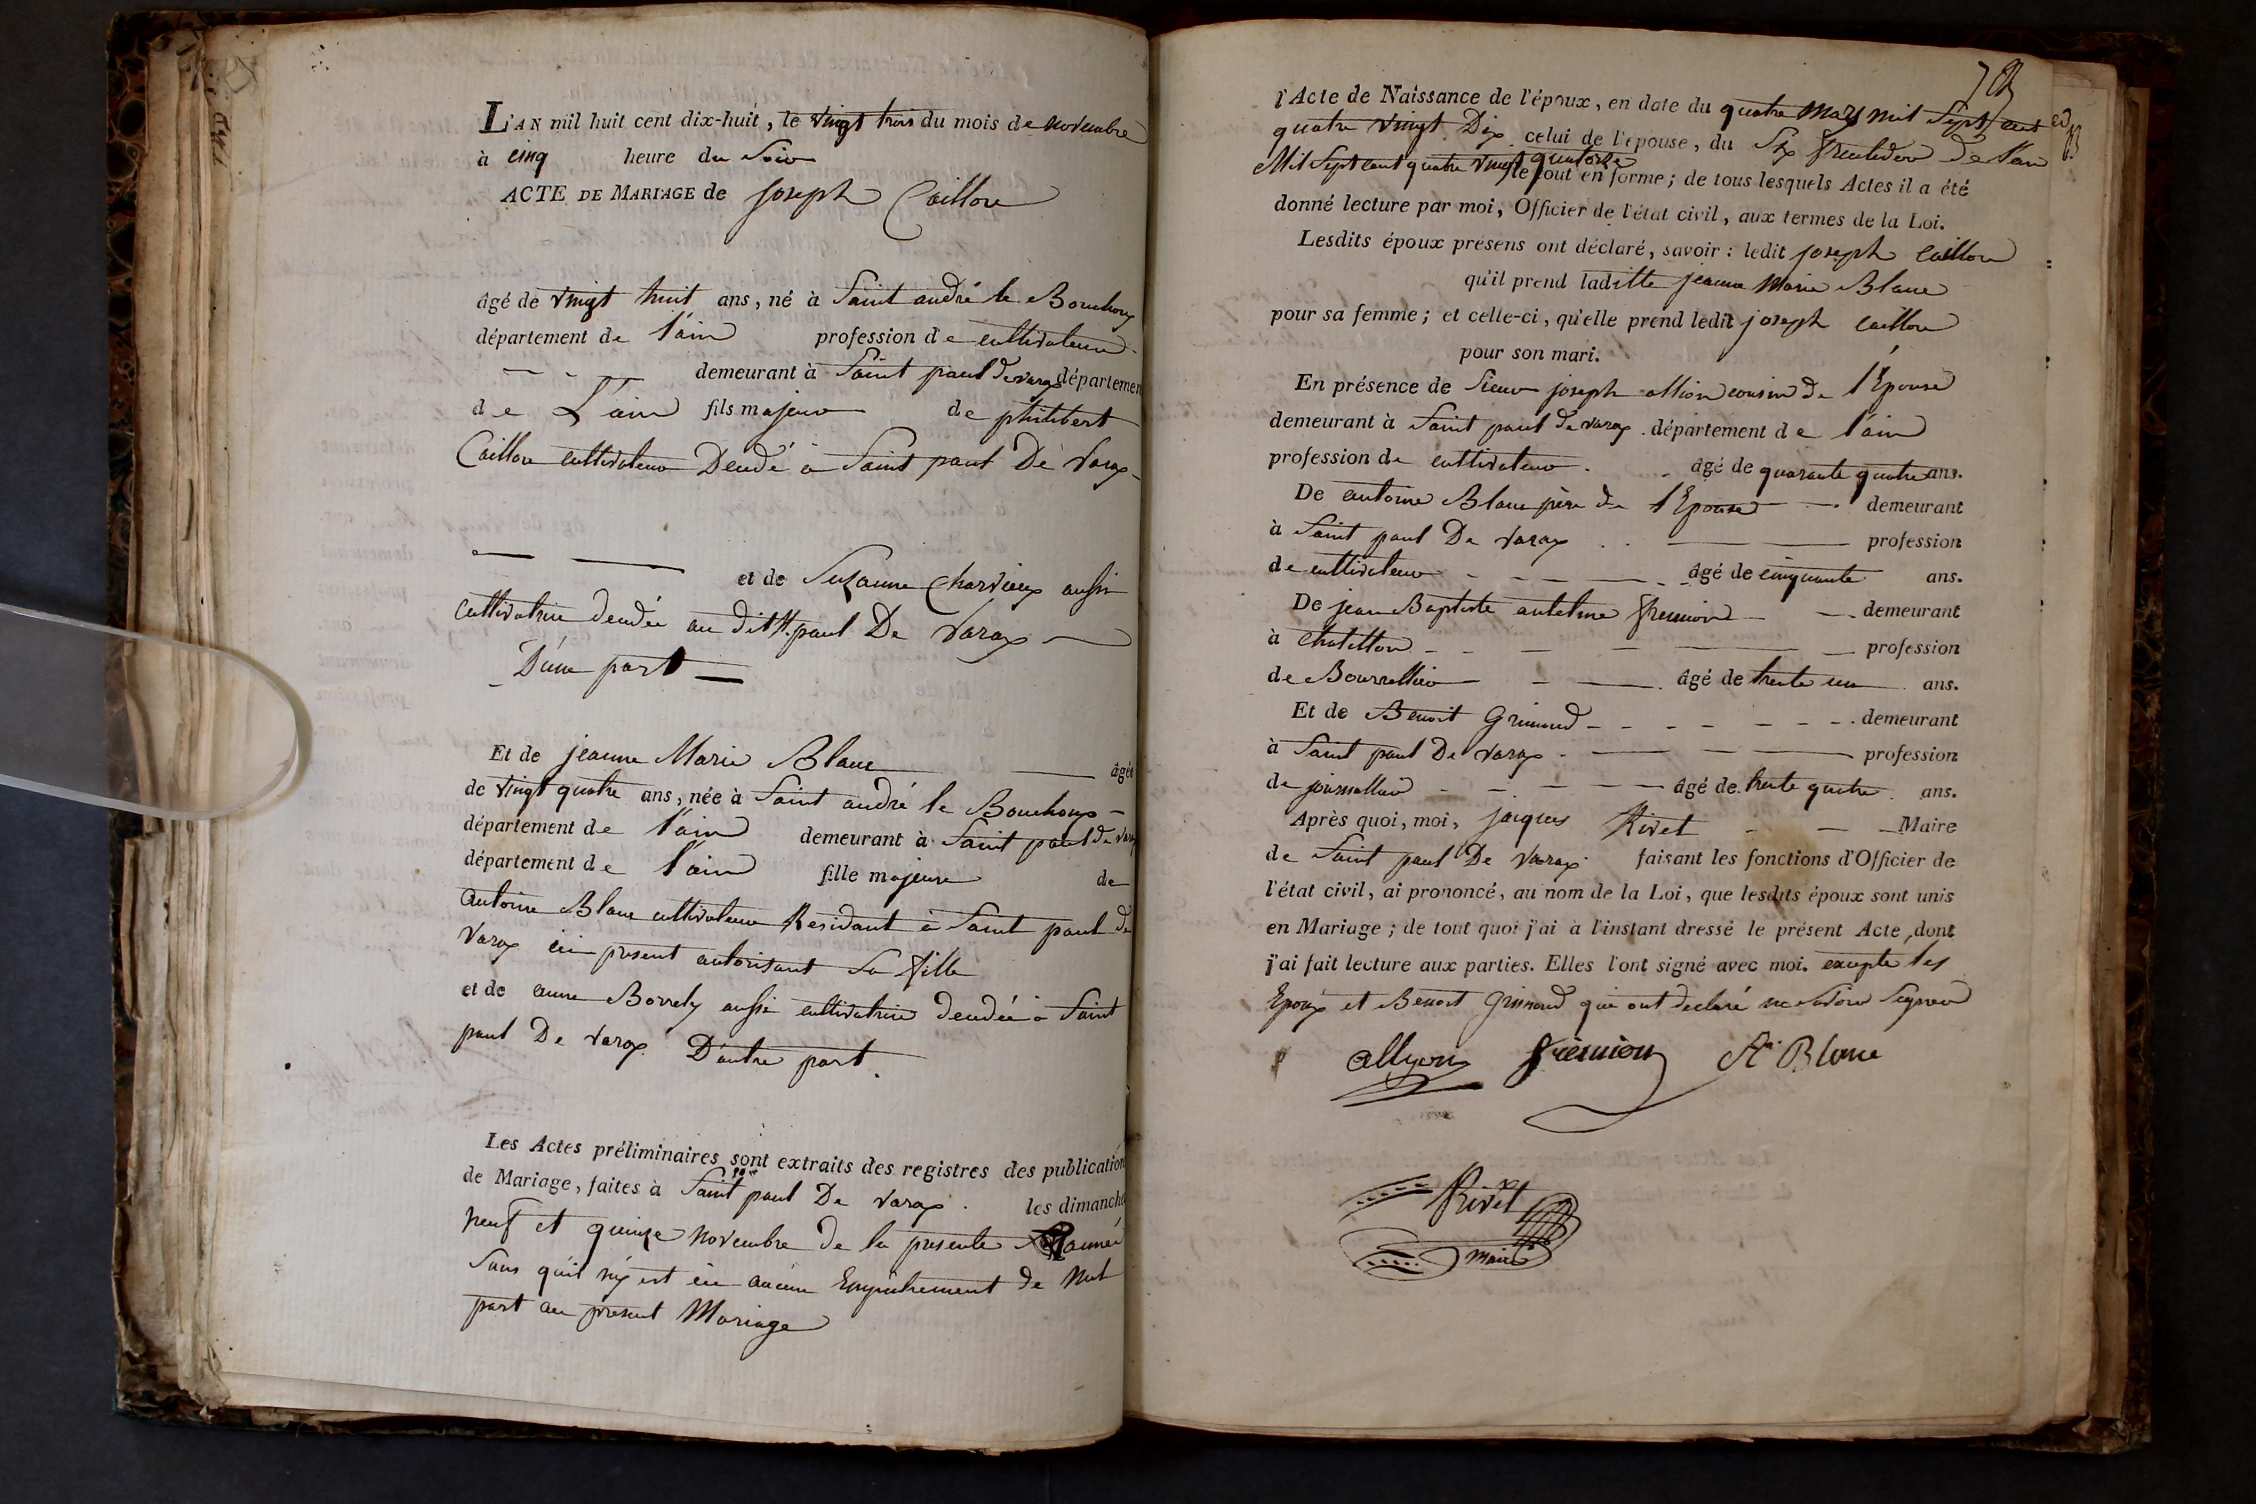 L'AN mil huit cent dix-huit, le vingt trois du mois de novembre
à cinq heure du Soir
ACTE DE MARIAGE de joseph Caillon
âgé de vingt huit ans, né à Saint andré le Bouchoux
département de l'ain profession de cultivateur
demeurant à Saint paul de varax départemen
de L'ain fils majeur de philibert
Caillon cultivateur Dcudé à Saint paul De Varax
et de Suzanne Charvieux aussi
cultivatrice dcudée au dit St. paul De Varax
D'une part
Et de jeanne Marie Blanc âgée
de vingt quatre ans, née à Saint andré le Bouchoux
département de l'ain demeurant à Saint paul de varax
département de l'ain fille majeure de
antoine Blanc cultivateur Residant à Saint paul de
Varax ici present autorisant Sa fille
et de anne Borrely aussi cultivatrice dcudée à Saint
paul De varax D'autre part.
Les Actes préliminaires sont extraits des registres des publication
de Mariage, faites à Saint paul De varax. les dimanche
neuf et quinze novembre de la presente année
Sans qu'il n'y est eu aucun Empêchement de Nul
part au present Mariage
78
l'Acte de Naissance de l'époux, en date du quatre Mars mil Sept cent
quatre vingt Dix celui de l'épouse, du Six fructidor De l'an
Mil Sept cent quatre vingt quatorze
le tout en forme; de tous lesquels Actes il a été
donné lecture par moi, Officier de l'état civil, aux termes de la Loi.
Lesdits époux présens ont déclaré, savoir : ledit joseph caillon
qu'il prend laditte jeanne Marie Blanc
pour sa femme; et celle-ci, qu'elle prend ledit joseph caillon
pour son mari.
En présence de Sieur joseph allion cousin de l'Epouse
demeurant à Saint paul de varax. département de l'ain
profession de cultivateur. âgé de quarante quatre ans.
De antoine Blanc père de l'Epouse demeurant
à Saint paul De varax profession
de cultivateur âgé de cinquante ans.
De jean Baptiste antelme fremion demeurant
à chatillon profession
de Bourrellier âgé de trente un ans.
Et de Benoit Grimaud demeurant
à Saint paul De varax profession
de journallier âgé de trente quatre ans.
Après quoi, moi, jacques Rivet Maire
de Saint paul De Varax faisant les fonctions d'Officier de
l'état civil, ai prononcé, au nom de la Loi, que lesdits époux sont unis
en Mariage; de tout quoi j'ai à l'instant dressé le présent Acte, dont
j'ai fait lecture aux parties. Elles l'ont signé avec moi. excepte les
Epoux et Benoit Grimaud qui ont declaré ne Savoir Signer
allyon fremion An. Blanc
Rivet
maire